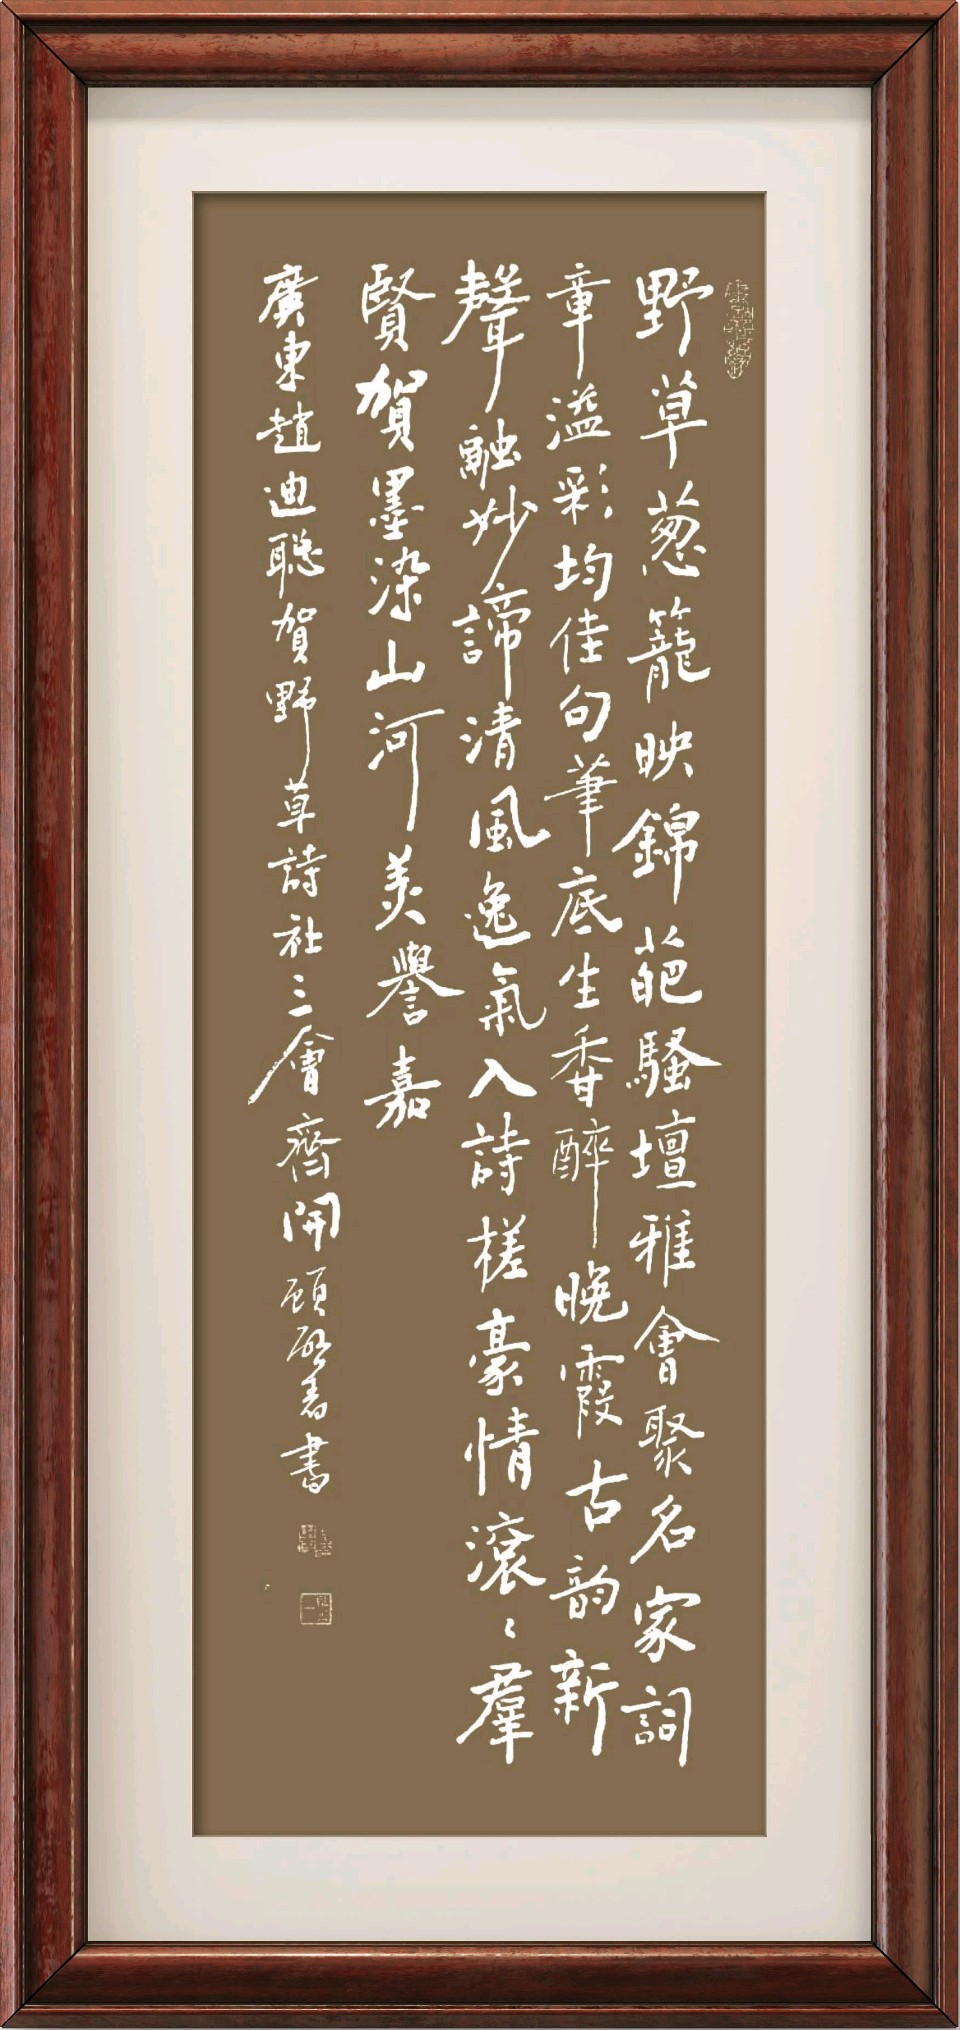 野草葱籠映錦葩騷壇雅會聚名家詞
章溢彩均佳句筆底生香醉晚霞古韵新
聲融妙諦清風逸氣入詩槎豪情滾〻羣
賢賀墨染山河美譽嘉
廣東趙迪聪賀野草詩社三會齊開 顾啓書